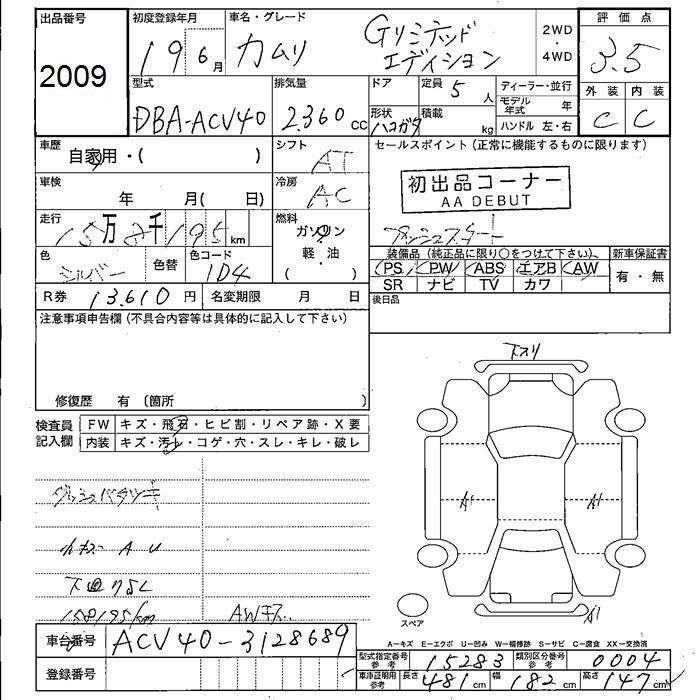 出品番号
2009
初度登録年月
19 6月
車名・グレード
カムリ
Gリミテッド
エディション
2WD
・
4WD
評価点
3.5
型式
DBA-ACV40
排気量
2.360 cc
ドア
定員 5 人
形状
ハコガタ
積載 kg
ディーラー・並行
モデル年式 年
ハンドル 左・右
外装 内装
C C
車歴
自家用・( )
シフト
AT
セールスポイント(正常に機能するものに限ります)
初出品コーナー
AA DEBUT
車検
年 月( 日)
冷房
AC
走行
15万8千195km
燃料
ガソリン
軽・油
( )
プッシュスタート
色
シルバー
色替
色コード
1D4
装備品(純正品に限り○をつけて下さい)
新車保証書
PS PW ABS エアB AW
SR ナビ TV カワ
有・無
R券 13.610円
名変期限 月 日
後日品
注意事項申告欄(不具合内容等は具体的に記入して下さい)
修復歴 有〔箇所 〕
下スリ
検査員
記入欄
FW キズ・飛石・ヒビ割・リペア跡・X要
内装 キズ・汚れ・コゲ・穴・スレ・キレ・破レ
A1
A1
小キズ A U
158195km
AWキズ
スペア
A1
A-キズ E-エクボ U-凹み W-補修跡 S-サビ C-腐食 XX-交換済
車台番号 ACV40-3128689
型式指定番号 参考 15283
類別区分番号 参考 0004
登録番号
車庫証明用 参考 長さ 481cm 幅 182cm 高さ 147cm